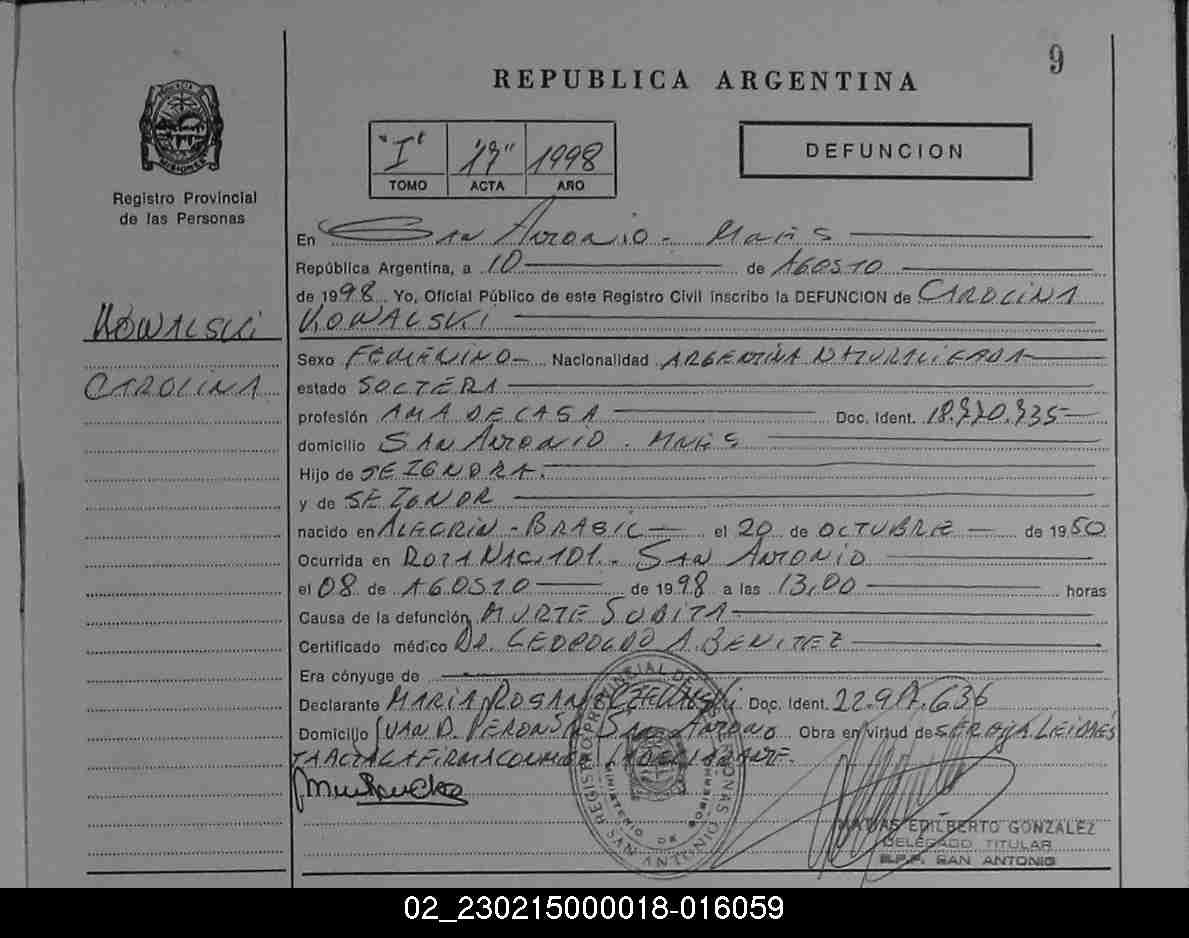 9
REPUBLICA ARGENTINA
"I" 17" 1998
TOMO ACTA AÑO
DEFUNCION
MISIONES
Registro Provincial
de las Personas
KOWALSKI
CAROLINA
En SAN ANTONIO - MNES
República Argentina, a 10 de AGOSTO
de 1998. Yo, Oficial Público de este Registro Civil inscribo la DEFUNCION de CAROLINA
KOWALSKI
Sexo FEMENINO - Nacionalidad ARGENTINA NATURALIZADA
estado SOLTERA
profesión AMA DE CASA Doc. Ident. 18.770.735
domicilio SAN ANTONIO - MNES
Hijo de SE IGNORA.
y de SE IGNOR
nacido en ALEGRIN - BRASIL el 20 de OCTUBRE de 1950
Ocurrida en ROTA NAC. 101. SAN ANTONIO
el 08 de AGOSTO de 1998 a las 13,00 horas
Causa de la defunción MURTE SUBITA
Certificado médico DR. LEOPOLDO A. BENITEZ
Era cónyuge de
Declarante MARIA ROSANA Doc. Ident. 22.917.636
Domicilio JUAN D. PERON SAN ANTONIO Obra en virtud de
TA ACTA LA FIRMA CONMIGO LA DECLARANTE.
REGISTRO PROVINCIAL DE LAS PERSONAS
MINISTERIO DE GOBIERNO
SAN ANTONIO
MATIAS EDILBERTO GONZALEZ
DELEGADO TITULAR
R.P.P. SAN ANTONIO
02_230215000018-016059